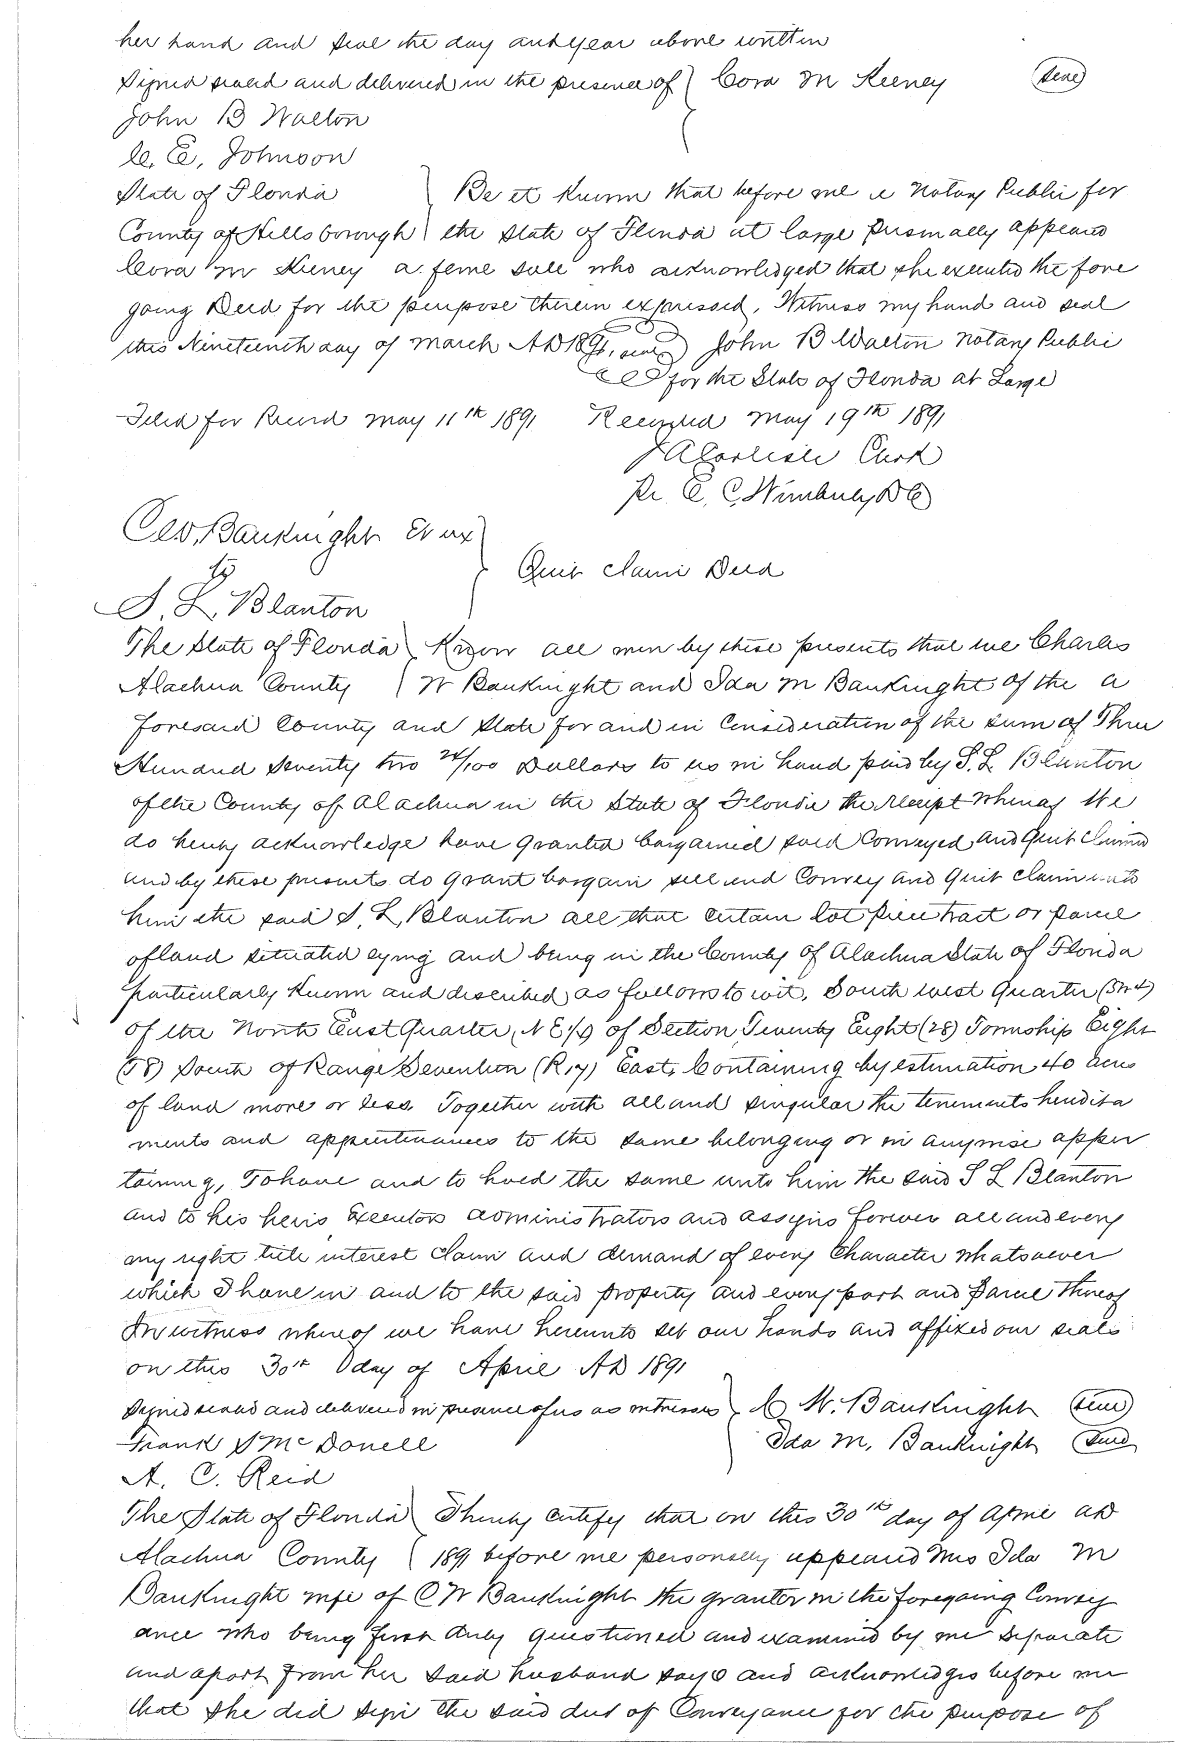 her hand and seal the day and year above written
Signed sealed and delivered in the presence of } Cora M Keeney (seal)
John B Walton
C. E. Johnson
State of Florida } Be it Known that before me a Notary Public for
County of Hillsborough } the State of Florida at large personally appeared
Cora M Keeney a feme sole who acknowledged that she executed the fore
going Deed for the purpose therein expressed, Witness my hand and seal
this Nineteenth day of March AD 1891, seal John B Walton Notary Public
for the State of Florida at Large
Filed for Record May 11th 1891 Recorded May 19th 1891
J A Carlisle Clerk
Pr E. C. Wimberly D C
Bauknight Et ux
to } Quit Claim Deed
S. L. Blanton
The State of Florida } Know all men by these presents that we Charles
Alachua County } W Bauknight and Ida M Bauknight of the a
foresaid County and State for and in Consideration of the sum of Three
Hundred Seventy two /100 Dollars to us in hand paid by S. L Blanton
of the County of Alachua in the State of Florida the receipt whereof We
do hereby acknowledge have granted bargained sold Conveyed and Quit Claimed
and by these presents do grant bargain sell and Convey and Quit Claim unto
him the said S. L Blanton all that certain lot piece tract or parcel
of land situated lying and being in the County of Alachua State of Florida
particularly Known and described as follows to wit, South west Quarter (SW4)
of the North East Quarter (NE/4) of Section Twenty Eight (28) Township Eight
(T8) South of Range Seventeen (R17) East, Containing by estimation 40 acres
of land more or less. Together with all and singular the tenements heredita
ments and appurtenances to the same belonging or in anywise apper
taining, To have and to hold the same unto him the said S L Blanton
and to his heirs Executors administrators and assigns forever all and every
my right title interest claim and demand of every Character whatsoever
which I have in and to the said property and every part and Parcel thereof
In witness whereof we have hereunto set our hands and affixed our seals
on this 30th day of April AD 1891
Signed sealed and delivered in presence of us as witnesses } C W. Bauknight (seal)
Frank S McDonell } Ida M. Bauknight (seal)
A. C. Reid
The State of Florida } I hereby certify that on this 30th day of April AD
Alachua County } 1891 before me personally appeared Mrs Ida M
Bauknight wife of C W Bauknight the grantor in the foregoing Convey
ance who being first duly questioned and examined by me separate
and apart from her said husband says and acknowledges before me
that she did sign the said deed of Conveyance for the purpose of